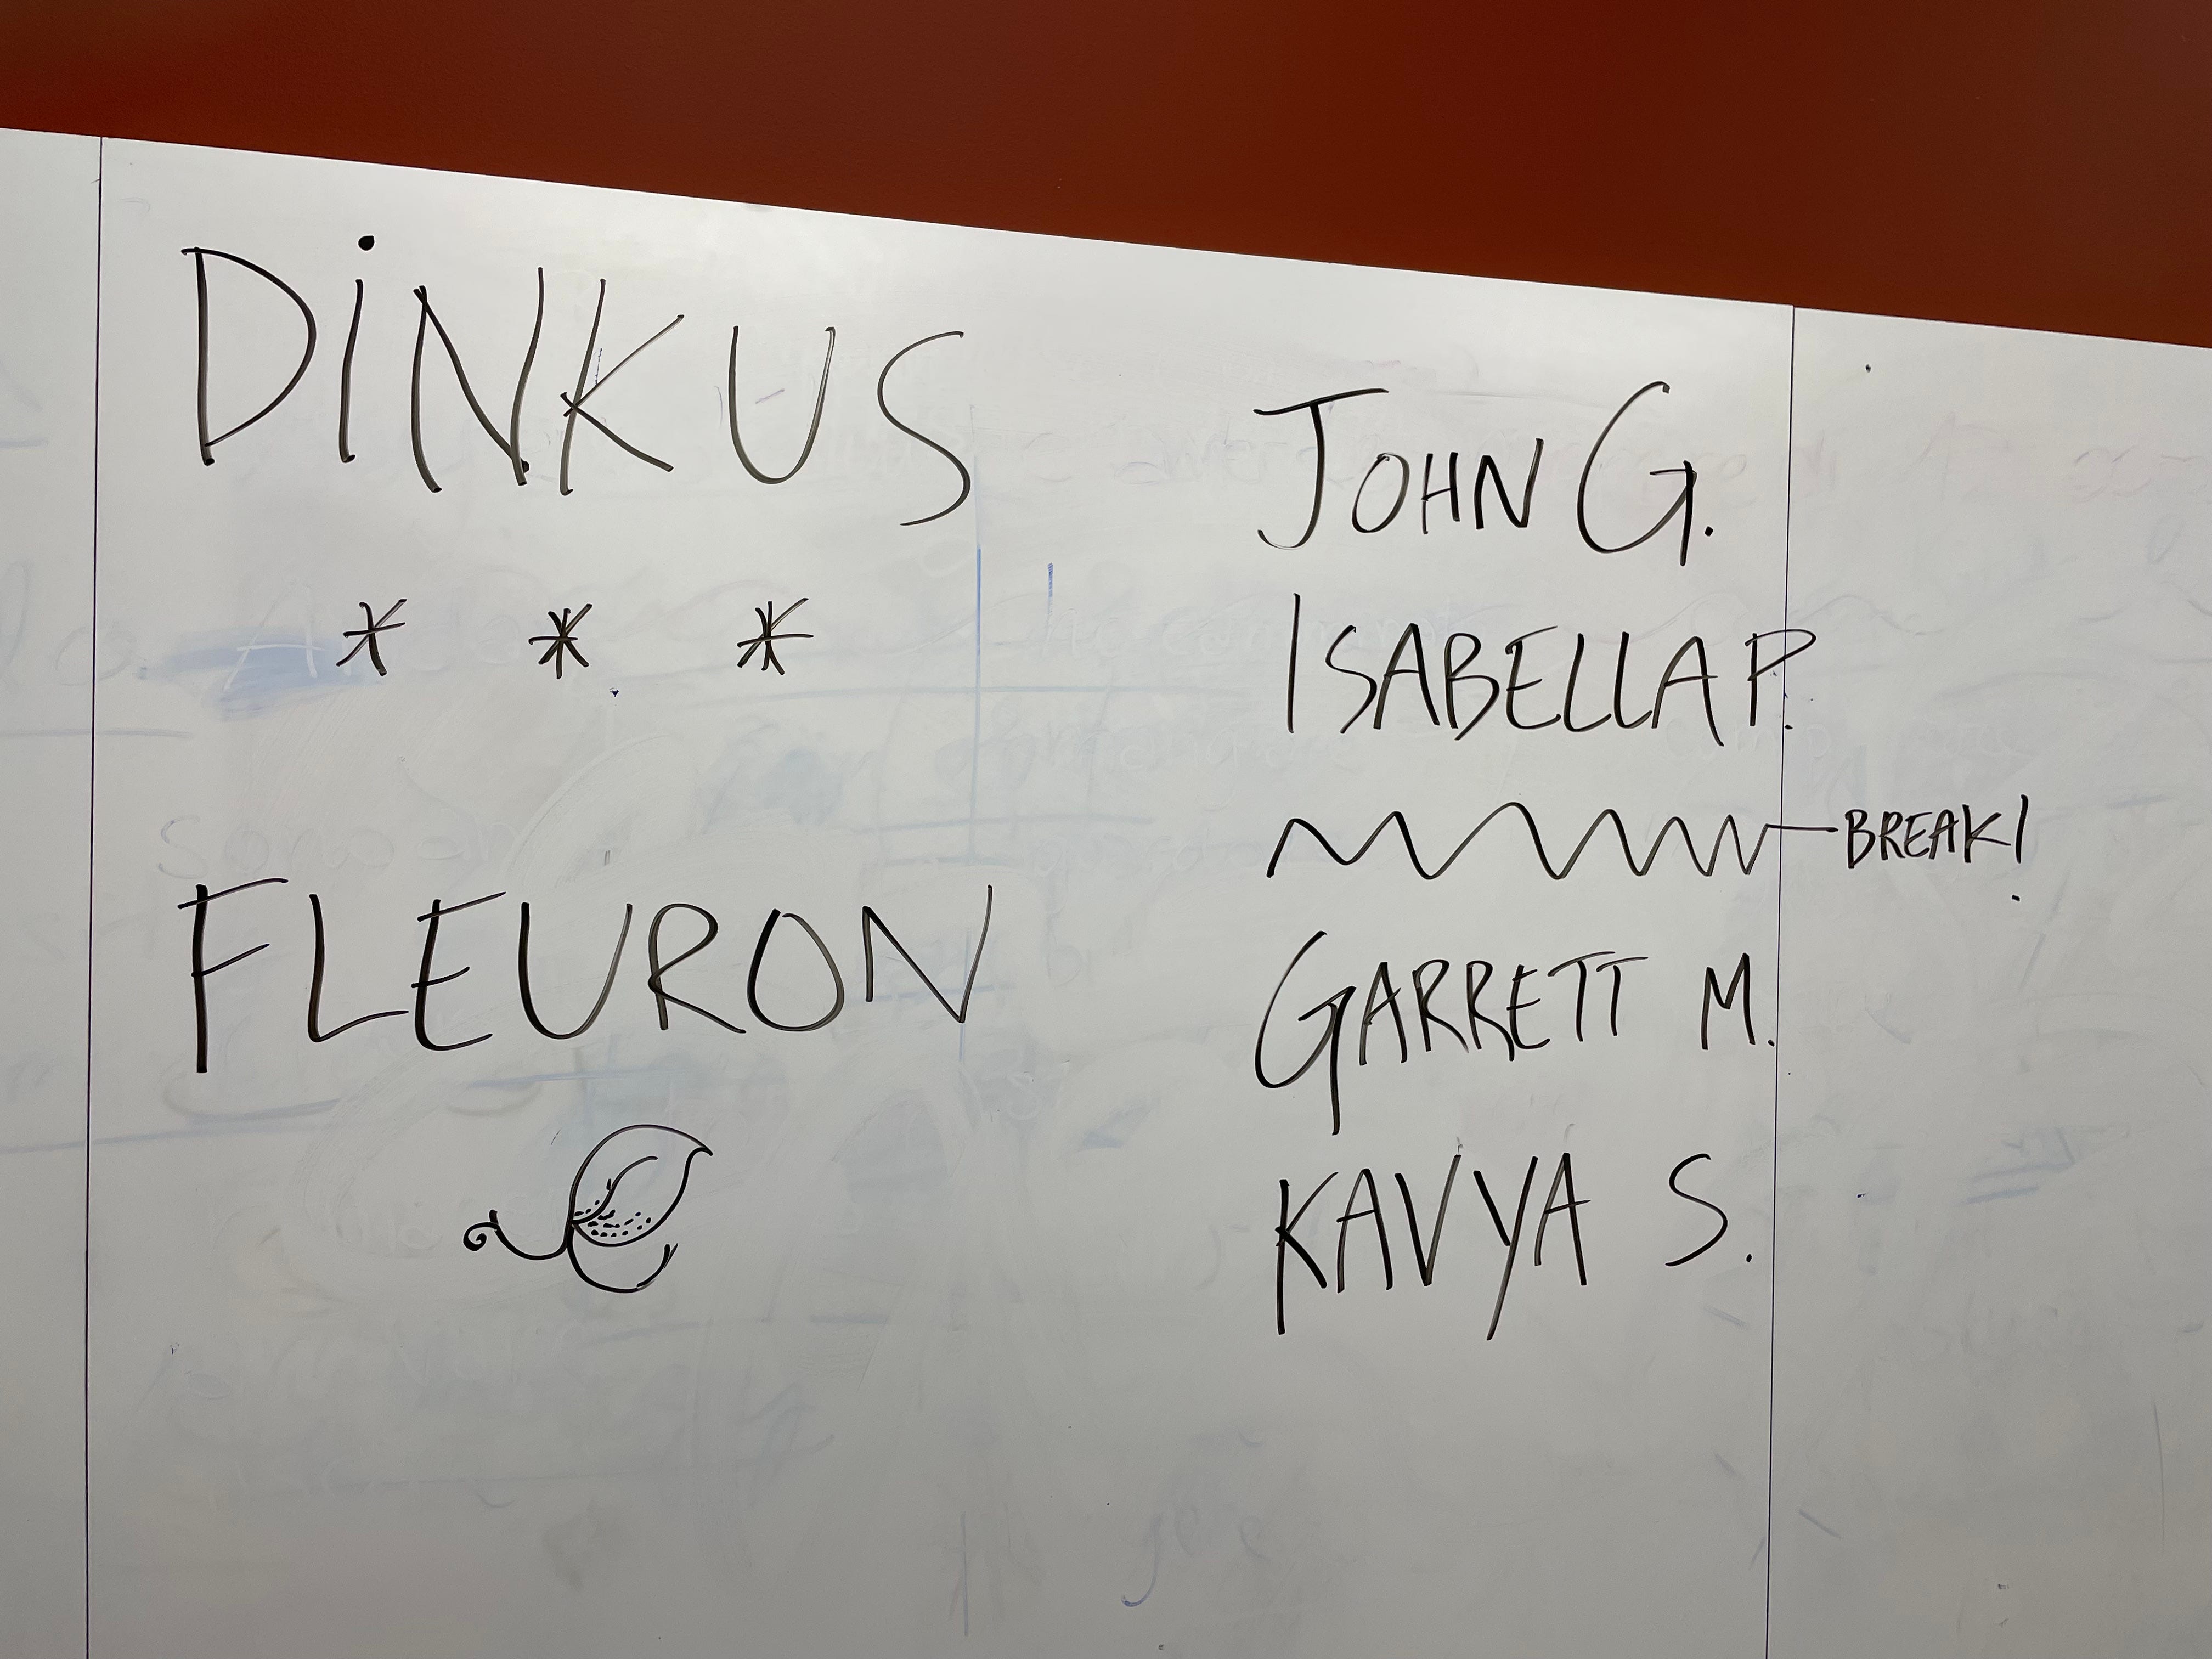 DiNKUS
* * *
FLEURON
JOHN G.
ISABELLA P.
BREAK!
GARRETT M.
KAVYA S.